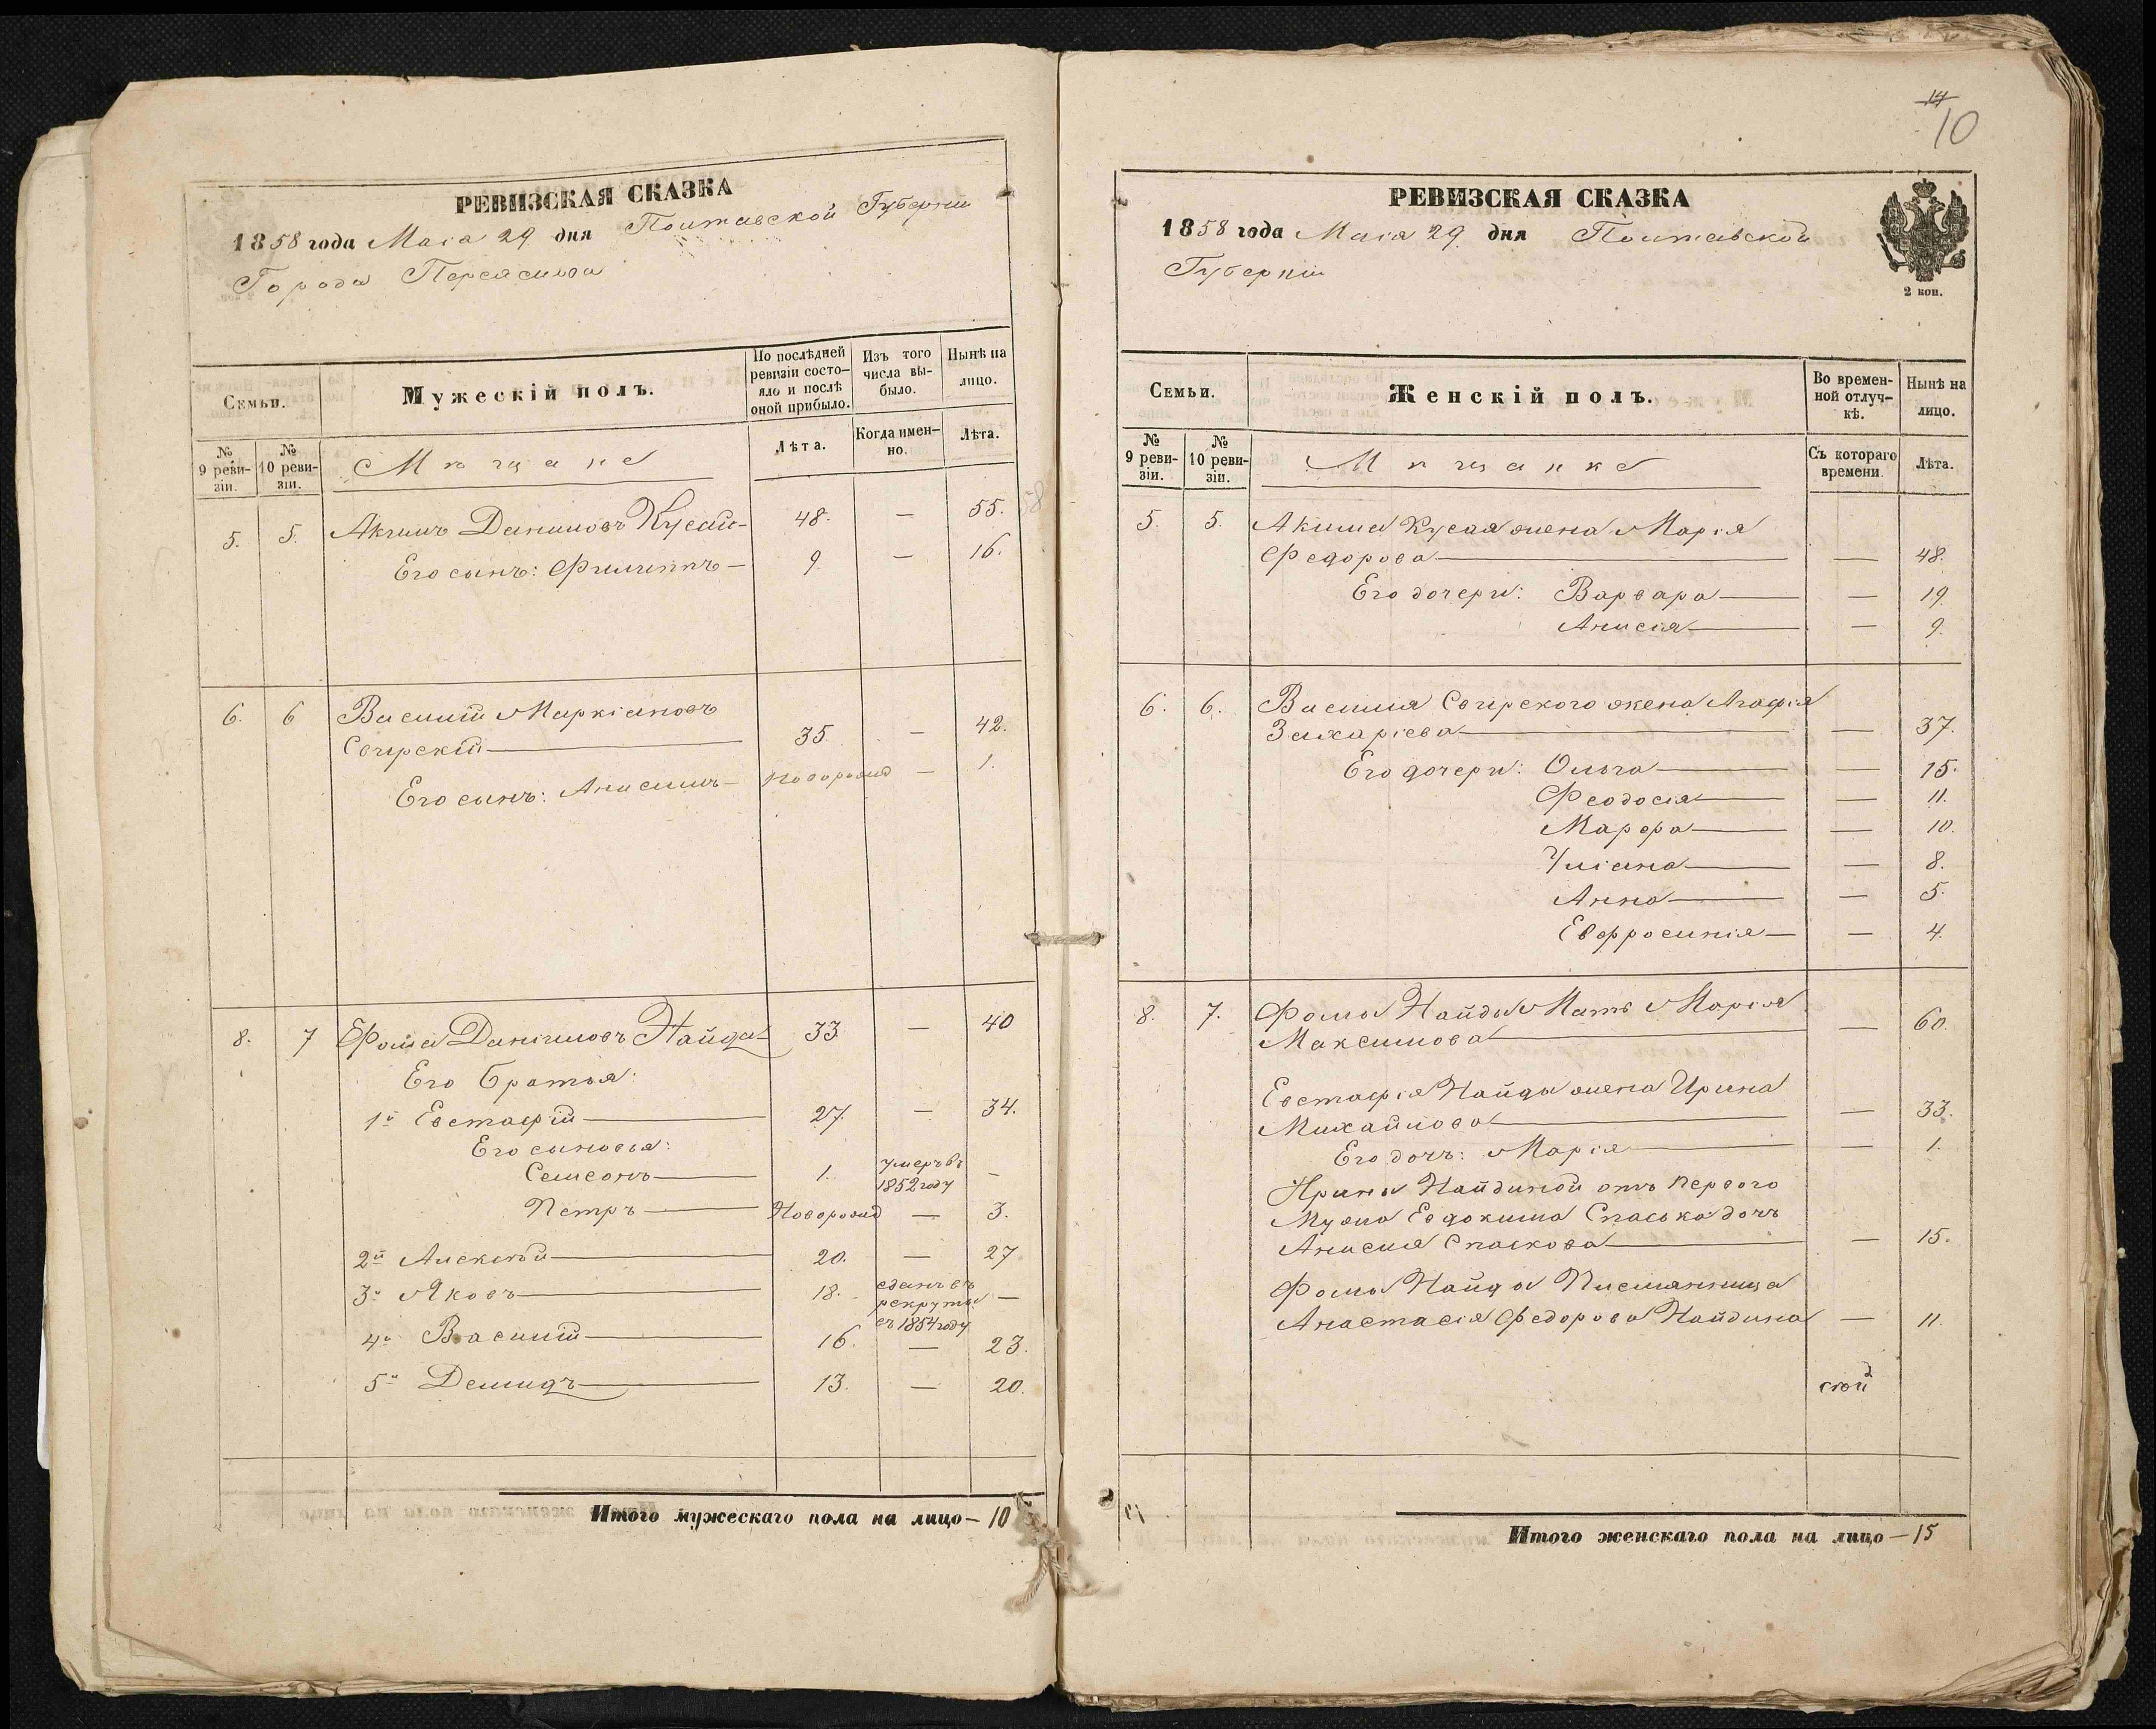 РЕВИЗСКАЯ СКАЗКА
1858 года Маія 29 дня Полтавской Губерніи
Города Переяслова
Семьи.
Мужескій полъ.
По послѣдней ревизіи состояло и послѣ оной прибыло.
Изъ того числа выбыло.
Нынѣ на лицо.
№ 9 ревизіи.
№ 10 ревизіи.
Мѣщане
Лѣта.
Когда именно.
Лѣта.
5. 5. Акимъ Даниловъ Кусай — 48. — 55.
Его сынъ: Филиппъ — 9 — 16.
6. 6 Василій Маркіановъ
Свирскій — 35 — 42.
Его сынъ: Анисимъ — новорожд — 1.
8. 7 Фома Даніиловъ Найда — 33 — 40
Его братья:
1й Евстафій — 27. — 34.
Его сыновья:
Семеонъ — 1. умеръ въ 1852 году —
Петръ — Новорожд — 3.
2й Алексѣй — 20. — 27
3й Яковъ — 18. сданъ въ рекруты въ 1854 году —
4й Василій — 16. — 23.
5й Демидъ — 13. — 20.
Итого мужескаго пола на лицо — 10
14
10
РЕВИЗСКАЯ СКАЗКА
1858 года Маія 29 дня Полтавской
Губерніи
2 коп.
Семьи.
Женскій полъ.
Во временной отлучкѣ.
Нынѣ на лицо.
№ 9 ревизіи.
№ 10 ревизіи.
Мѣщанке
Съ котораго времени.
Лѣта.
5. 5. Акима Кусая жена Марія
Федорова — — 48.
Его дочери: Варвара — — 19.
Анисія — — 9.
6. 6. Василія Свирского жена Агафія
Захаріева — — 37.
Его дочери: Ольга — — 15.
Феодосія — — 11.
Марфа — — 10.
Уліана — — 8.
Анна — — 5.
Евфросинія — — 4.
8. 7. Фомы Найды Мать Марія
Максимова — — 60.
Евстафія Найды жена Ирина
Михайлова — — 33.
Его дочъ: Марія — — 1.
Ирины Найдиной отъ первого
Мужа Евдокима Спаська дочъ
Анисия Спаскова — — 15.
Фомы Найды Писмянница
Анастасія Федорова Найдина — 11.
Итого женскаго пола на лицо — 15